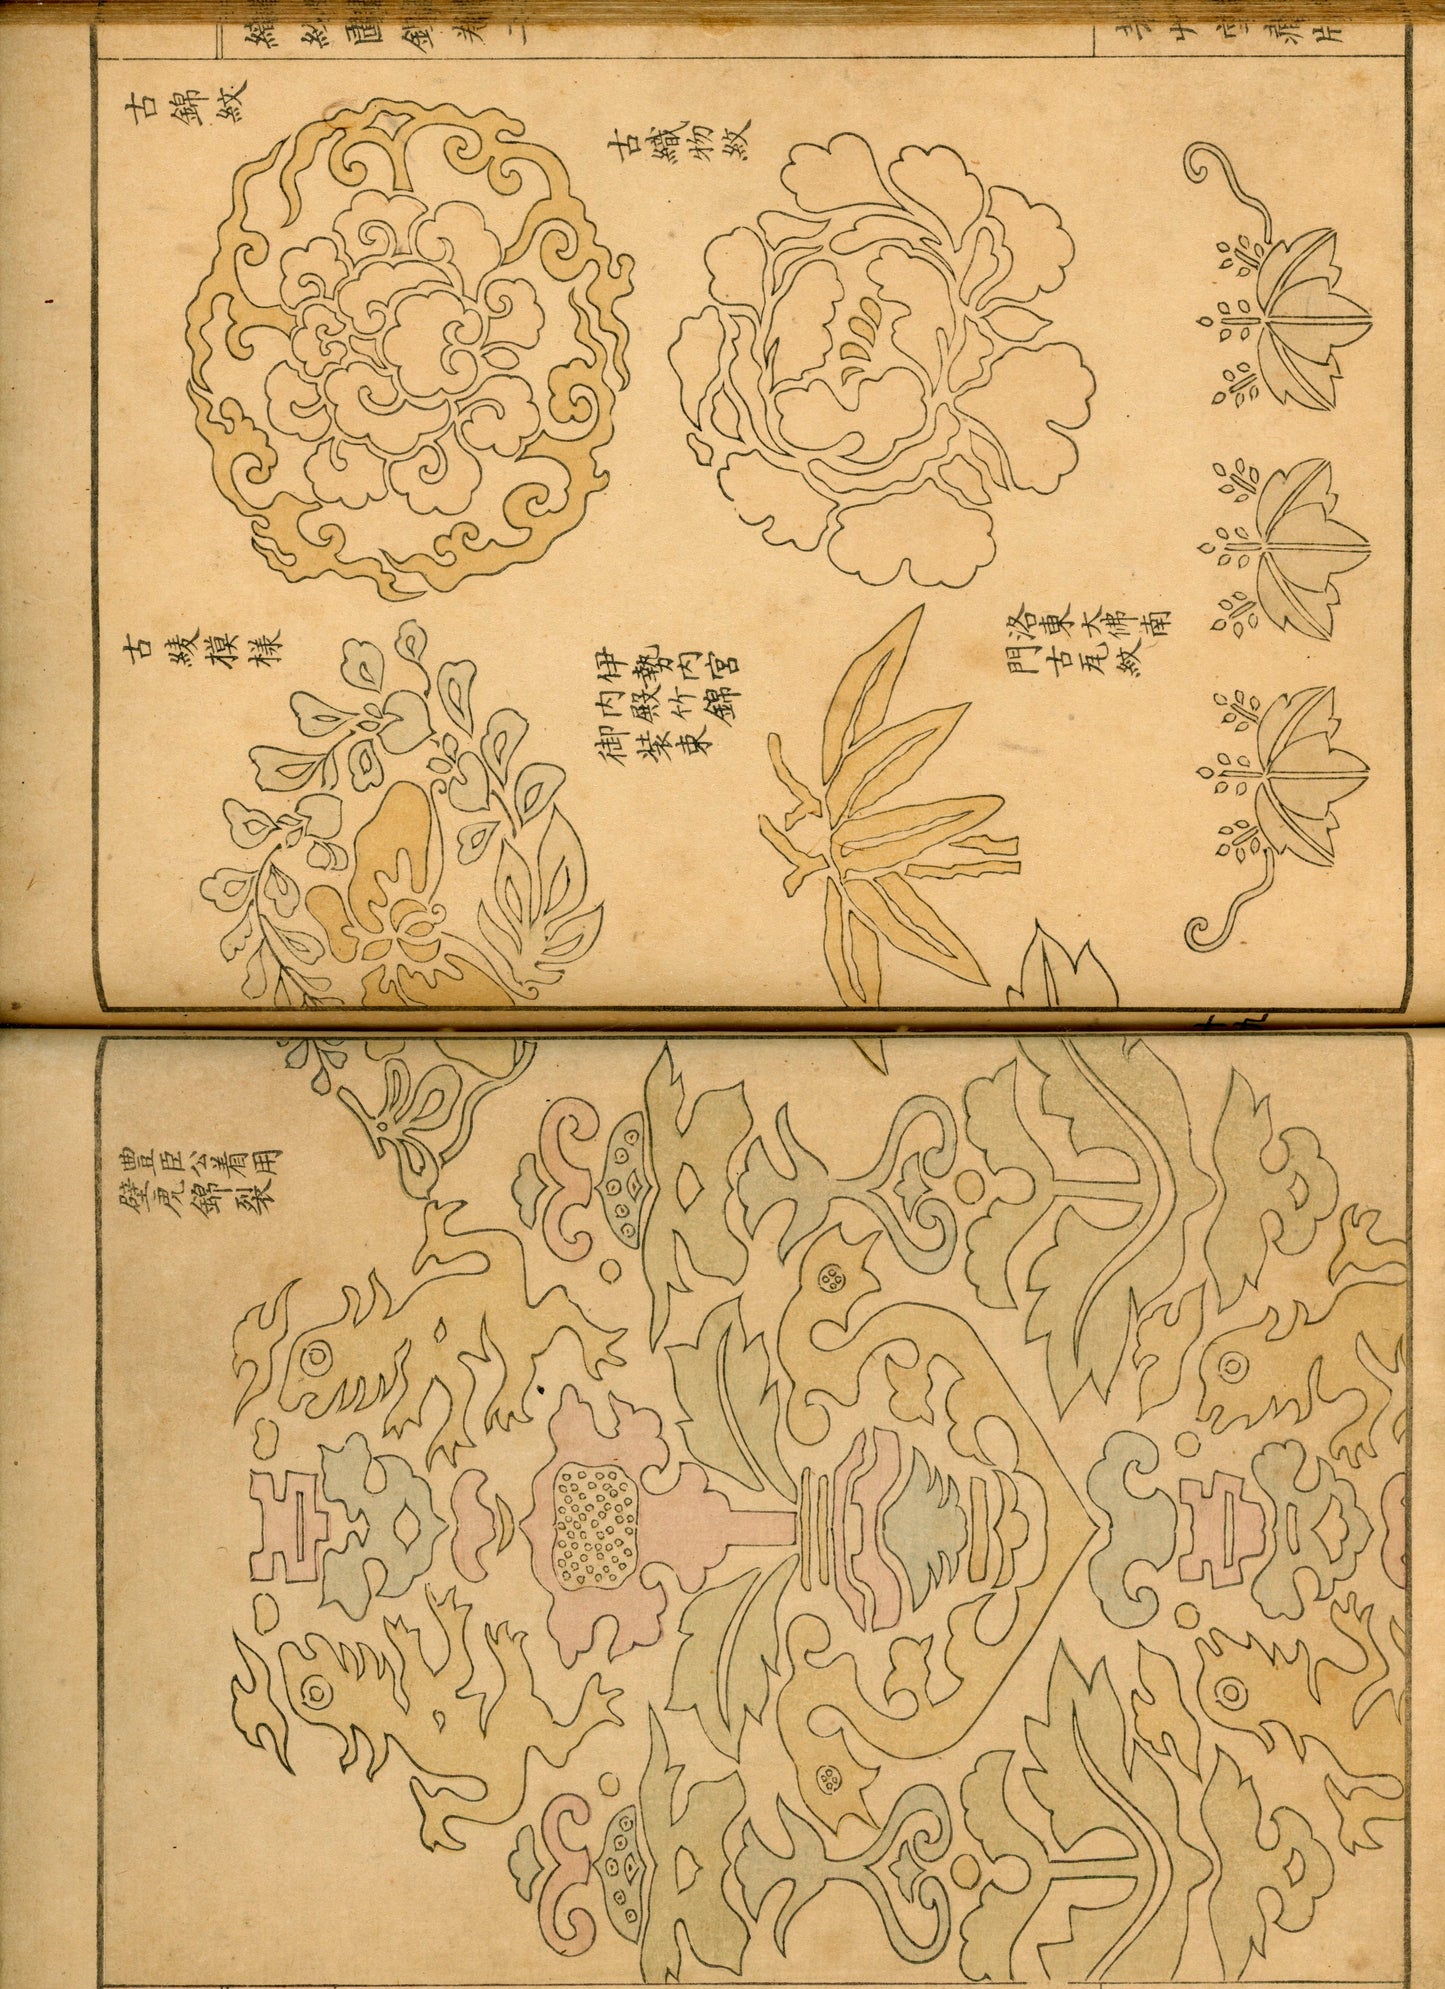 古錦紋
古織物紋
古綾模樣
伊勢内宮
内殿竹錦
御装束
洛東大佛南
門古瓦紋
十九
豊臣公着用
壁虎錦裂